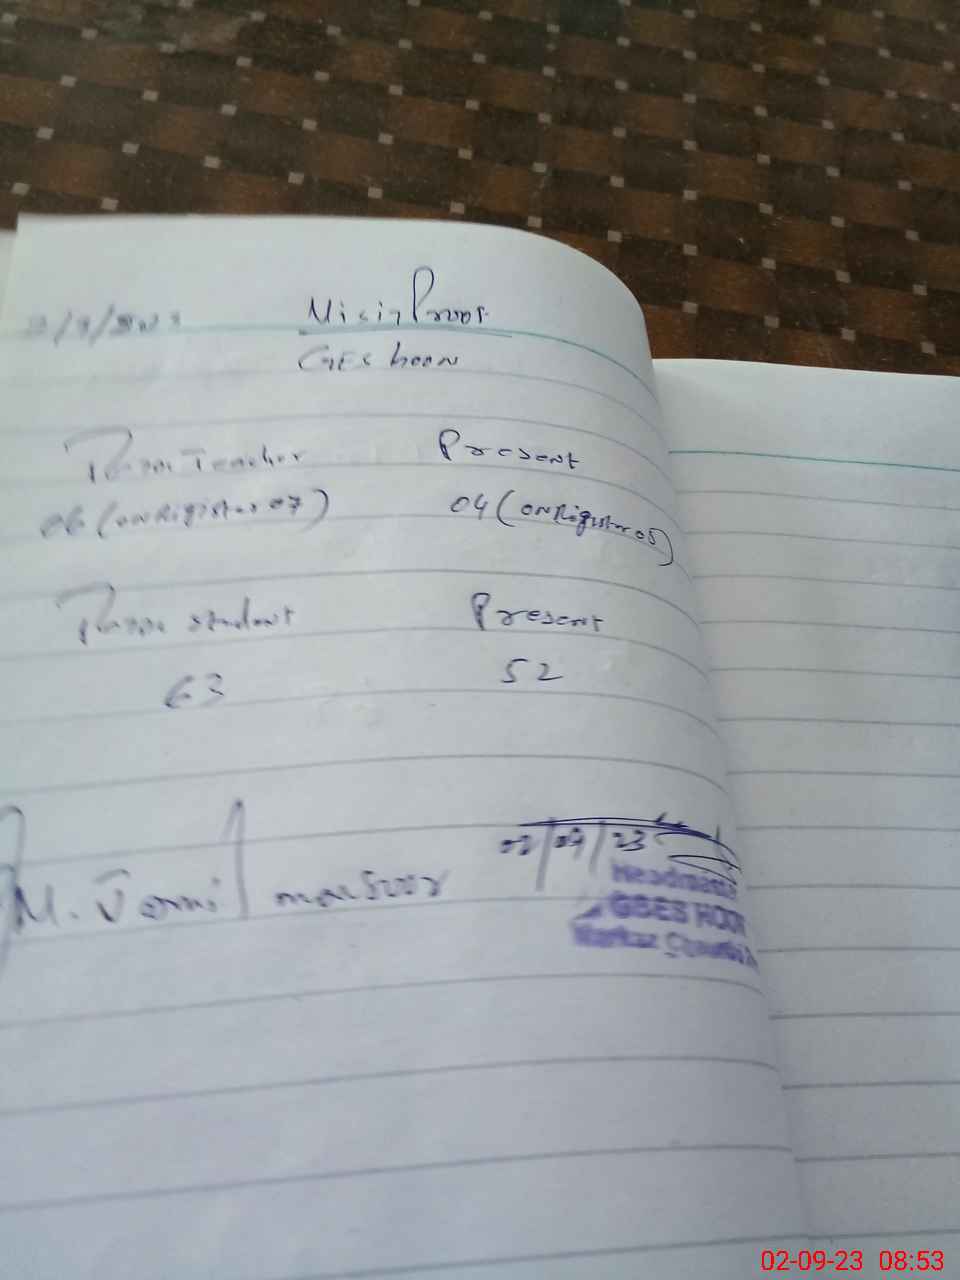 Visit Proof
GES hoon
Teacher Present
06 (on Rigister 07) 04 (on Rigister 05)
student Present
63 52
M. Jamil mansoor
02/09/23
Headmaster
GBES HOON
Markaz
02-09-23 08:53